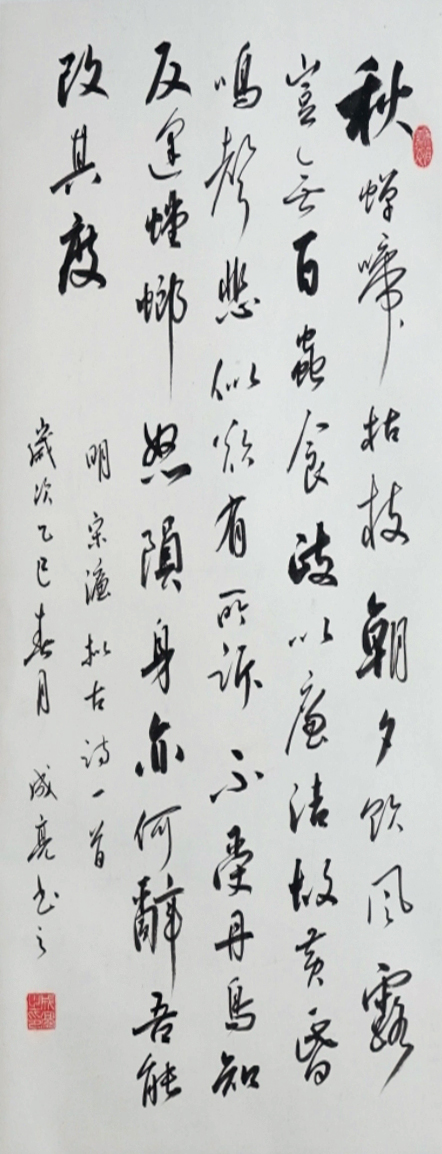 秋蟬啼枯枝朝夕飲風露
豈無百蟲食政以廉潔故黃昏
鳴聲悲似欲有所訴不受丹鳥知
反逢螳螂怒隕身亦何辭吾能
改其度
明宋濂拟古诗一首
歲次乙巳春月 成亮书之